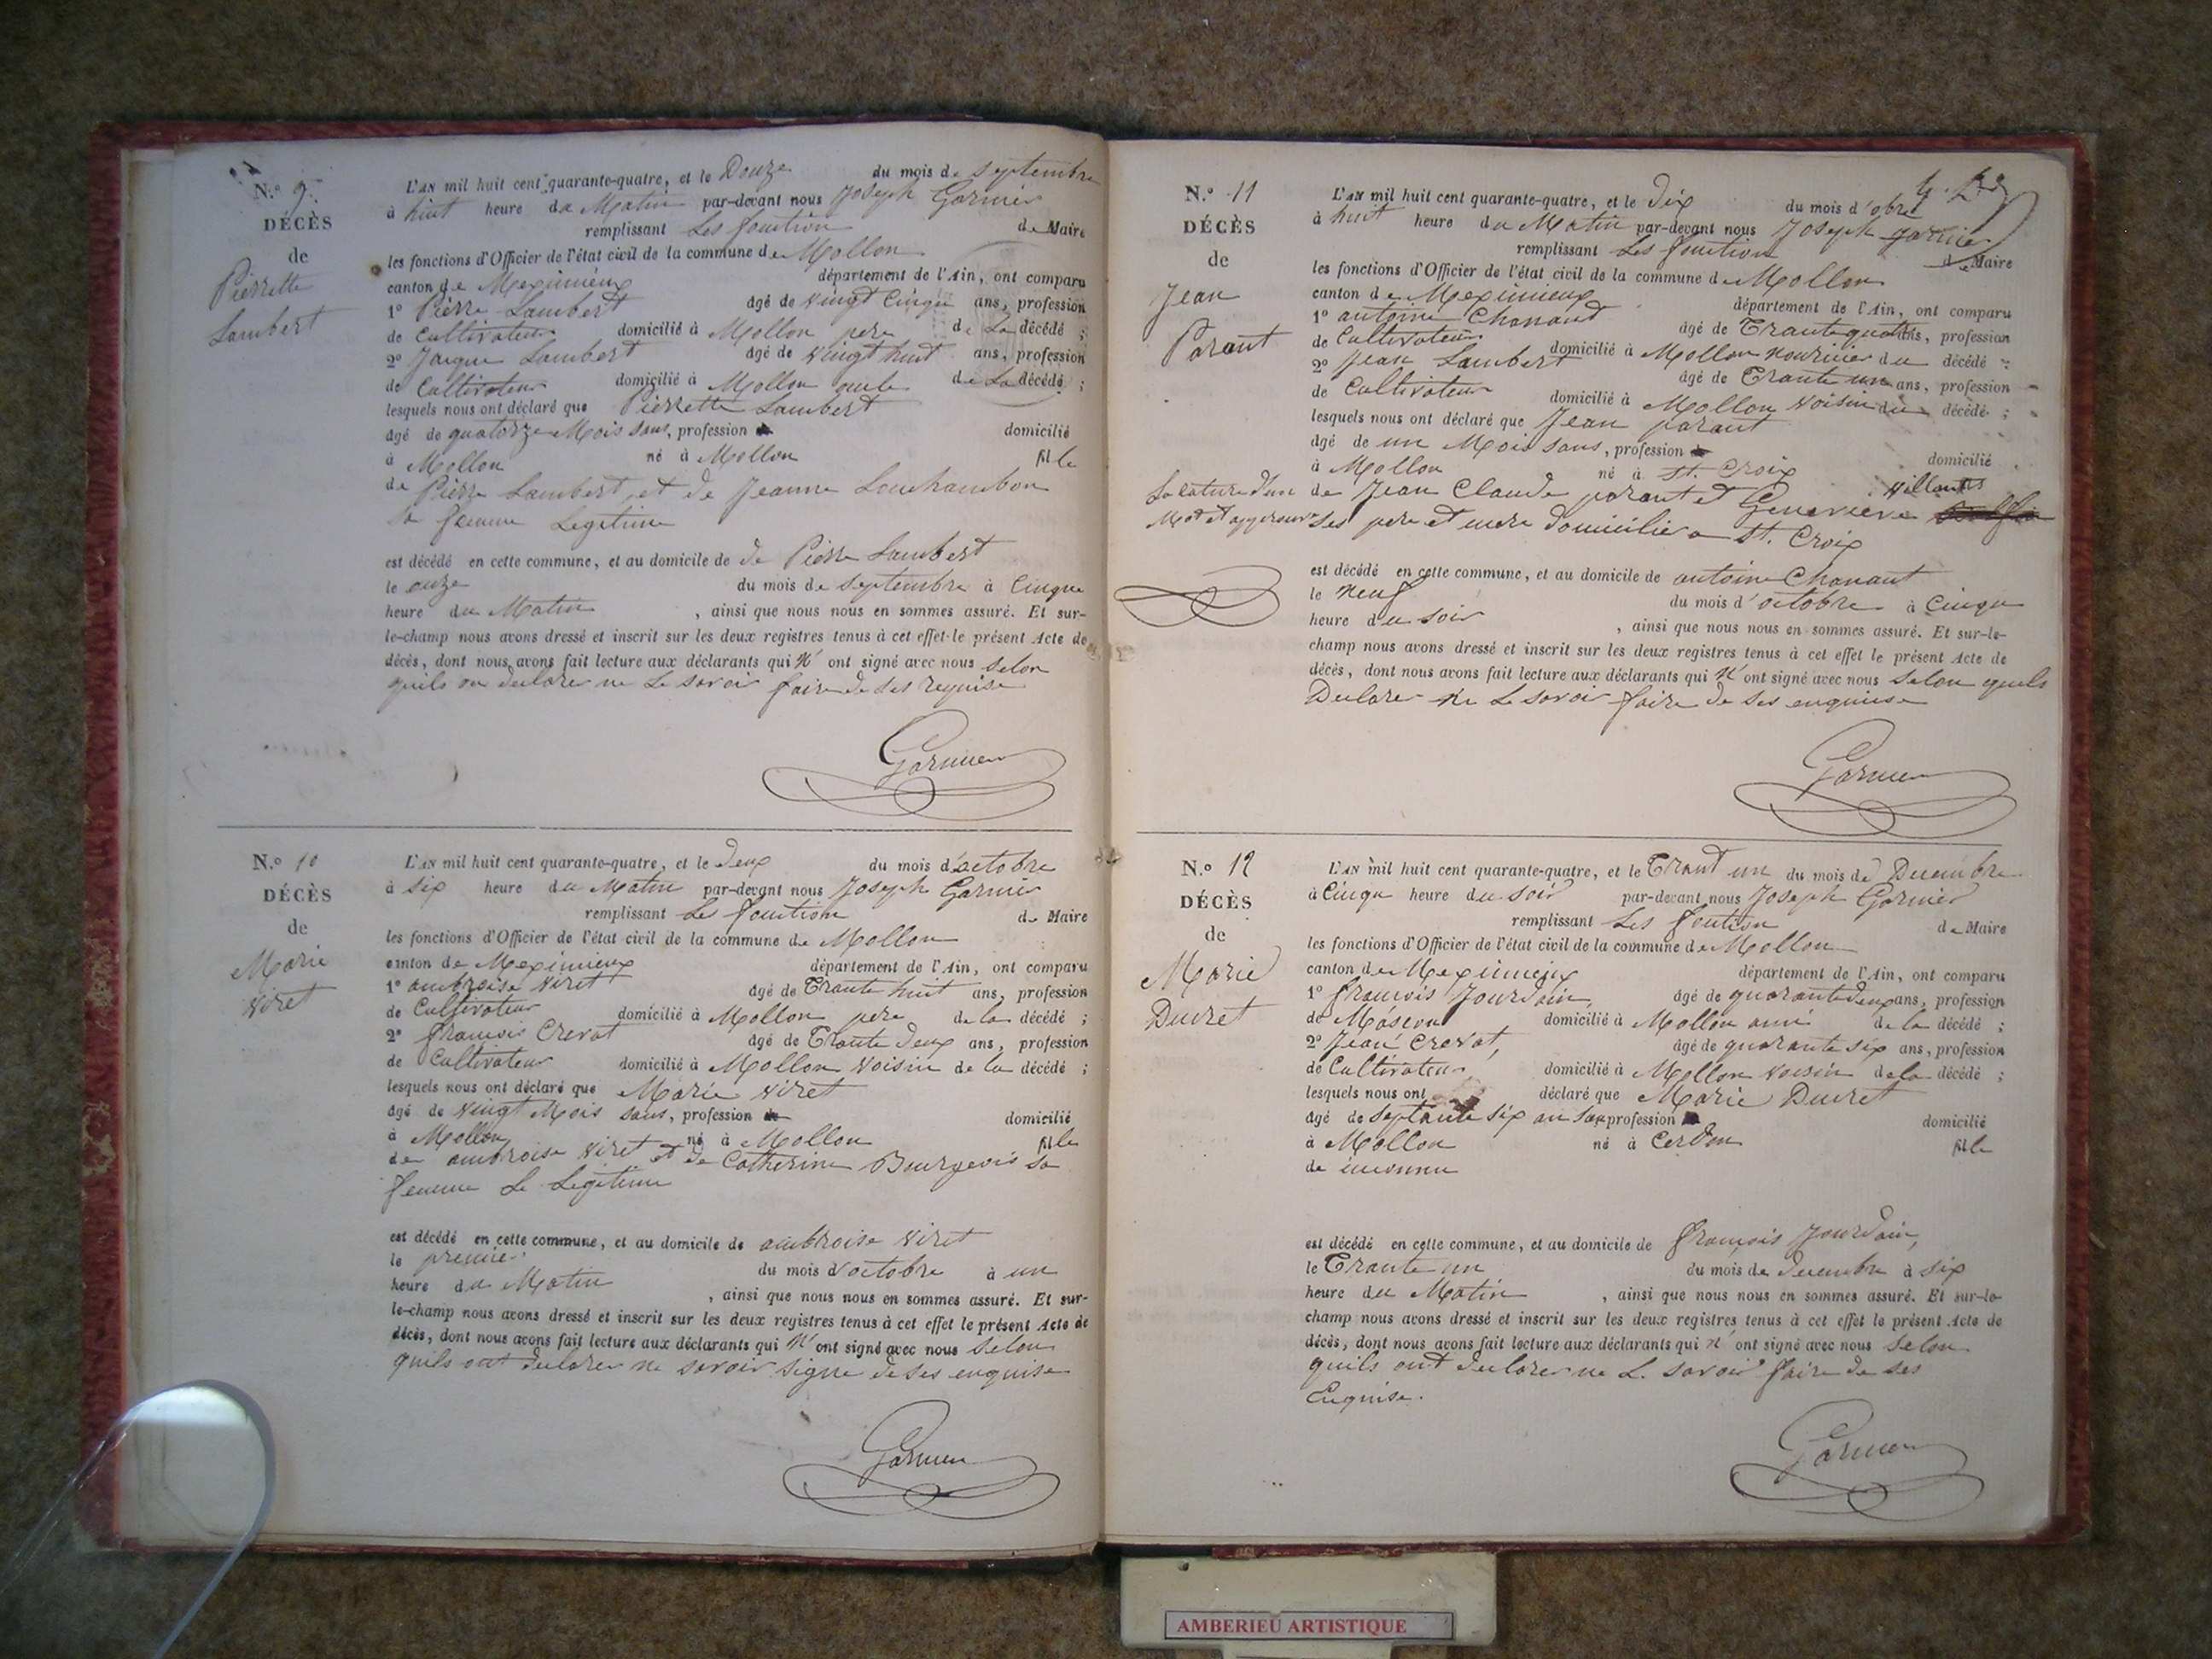 N.º 9.
DÉCÈS
de
Pierrette
Lambert
L'AN mil huit cent quarante-quatre, et le Douze du mois de septembre
à huit heure du Matin par-devant nous Joseph Garnier
remplissant Les fonction de Maire
les fonctions d'Officier de l'état civil de la commune de Mollon
canton de Meximieux département de l'Ain, ont comparu
1º Pierre Lambert âgé de vingt Cinque ans, profession
de Cultivateur domicilié à Mollon pere de La décédé ;
2º Jaque Lambert âgé de vingt huit ans, profession
de Cultivateur domicilié à Mollon oncle de La décédé ;
lesquels nous ont déclaré que Pierrette Lambert
âgé de quatorze Mois sans, profession domicilié
à Mollon né à Mollon fille
de Pierre Lambert et de Jeanne Louchambon
sa femme Legitime
est décédé en cette commune, et au domicile de de Pierre Lambert
le onze du mois de septembre à Cinque
heure du Matin , ainsi que nous nous en sommes assuré. Et sur-
le-champ nous avons dressé et inscrit sur les deux registres tenus à cet effet le présent Acte de
décès, dont nous avons fait lecture aux déclarants qui n' ont signé avec nous selon
quils on declarer ne Le savoir faire de ses requise
Garnier
N.º 10
DÉCÈS
de
Marie
Viret
L'AN mil huit cent quarante-quatre, et le Deux du mois d'octobre
à six heure du Matin par-devant nous Joseph Garnier
remplissant Les fonction de Maire
les fonctions d'Officier de l'état civil de la commune de Mollon
canton de Meximieux département de l'Ain, ont comparu
1º ambroise Viret âgé de Trante huit ans, profession
de Cultivateur domicilié à Mollon pere de la décédé ;
2º francois Crevat âgé de Trante Deux ans, profession
de Cultivateur domicilié à Mollon Voisin de la décédé ;
lesquels nous ont déclaré que Marie Viret
âgé de vingt Mois sans, profession domicilié
à Mollon né à Mollon fille
de ambroise Viret et de Catherine Bourgeois sa
femme Le Legitime
est décédé en cette commune, et au domicile de ambroise Viret
le premier du mois d'octobre à un
heure du Matin , ainsi que nous nous en sommes assuré. Et sur-
le-champ nous avons dressé et inscrit sur les deux registres tenus à cet effet le présent Acte de
décès, dont nous avons fait lecture aux déclarants qui n' ont signé avec nous Selon
quils ont declarer ne savoir signe de ses enquise
Garnier
N.º 11
DÉCÈS
de
Jean
Parant
L'AN mil huit cent quarante-quatre, et le Dix du mois d'obre
à huit heure du Matin par-devant nous Joseph garnier
remplissant Les fonction de Maire
les fonctions d'Officier de l'état civil de la commune de Mollon
canton de Meximieux département de l'Ain, ont comparu
1º antoine Chanaut âgé de Trante quatre ans, profession
de Cultivateur domicilié à Mollon nouricier du décédé
2º Jean Lambert âgé de Trante un ans, profession
de Cultivateur domicilié à Mollon Voisin du décédé ;
lesquels nous ont déclaré que Jean parant
âgé de un Mois sans, profession domicilié
à Mollon né à St. Croix
de Jean Claude parant et Genevieve
ses pere et mere domicilié a St. Croix
est décédé en cette commune, et au domicile de antoine Chanaut
le neuf du mois d'octobre à Cinque
heure du soir , ainsi que nous nous en sommes assuré. Et sur-le-
champ nous avons dressé et inscrit sur les deux registres tenus à cet effet le présent Acte de
décès, dont nous avons fait lecture aux déclarants qui n' ont signé avec nous Selon quils
Declarer ne Le savoir faire de ses enquise
Garnier
N.º 12
DÉCÈS
de
Marie
Ducret
L'AN mil huit cent quarante-quatre, et le Trant un du mois de Decembre
à Cinque heure du soir par-devant nous Joseph Garnier
remplissant Les fontion de Maire
les fonctions d'Officier de l'état civil de la commune de Mollon
canton de Meximieux département de l'Ain, ont comparu
1º francois Jourdain âgé de quarante deux ans, profession
de Mason domicilié à Mollon ami de la décédé ;
2º Jean Crevat, âgé de quarante six ans, profession
de Cultivateur, domicilié à Mollon voisin de la décédé ;
lesquels nous ont déclaré que Marie Ducret
âgé de septante six an sans profession domicilié
à Mollon né à Cerdon fille
de inconnu
est décédé en cette commune, et au domicile de francois Jourdain,
le Trante un du mois de decembre à six
heure du Matin , ainsi que nous nous en sommes assuré. Et sur-le-
champ nous avons dressé et inscrit sur les deux registres tenus à cet effet le présent Acte de
décès, dont nous avons fait lecture aux déclarants qui n' ont signé avec nous Selon
quils ont declarer ne L. savoir faire de ses
Enquise.
Garnier
AMBERIEU ARTISTIQUE